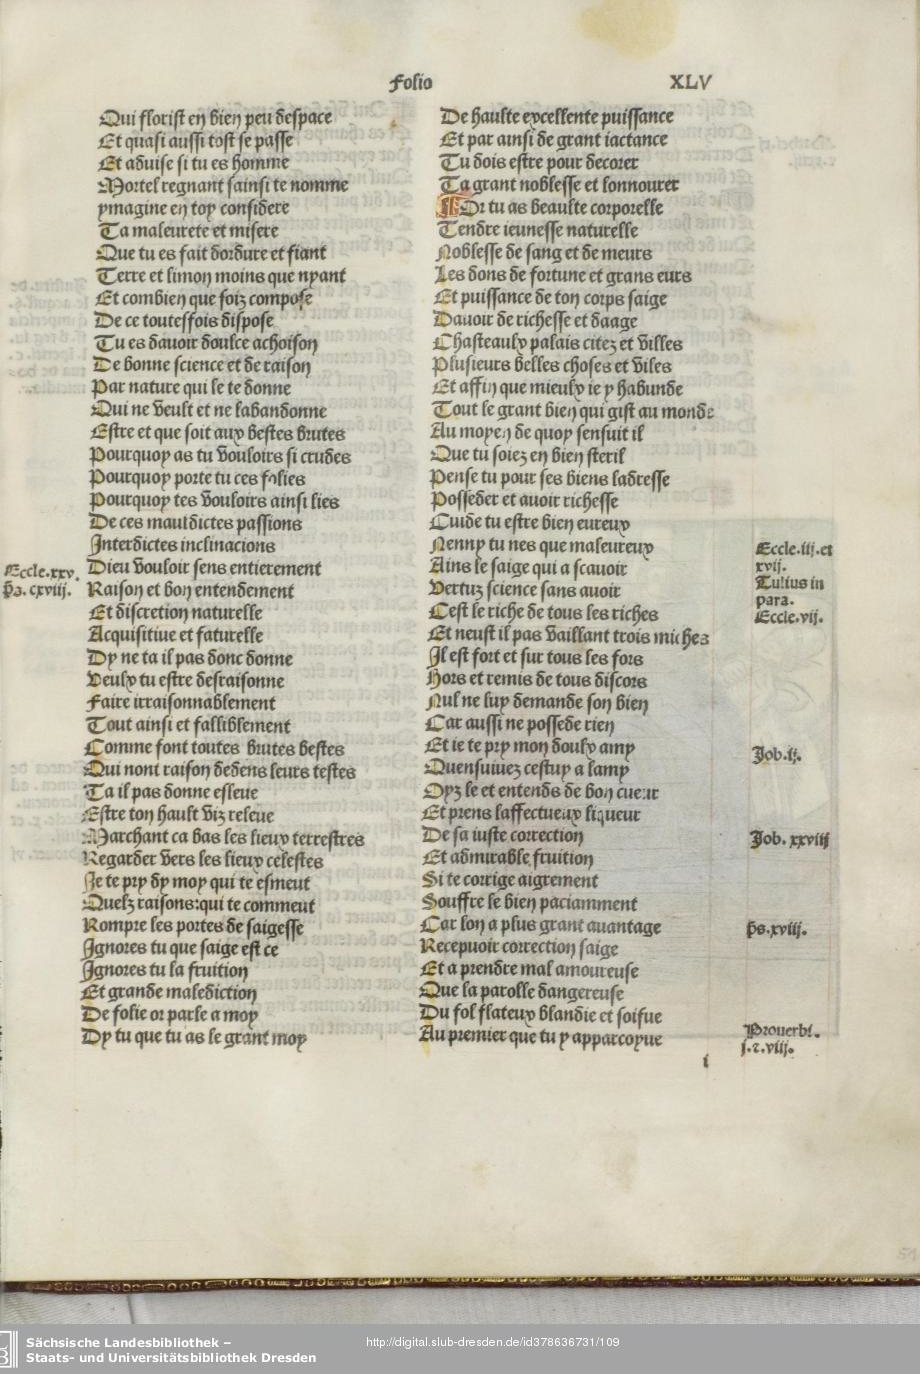 Folio XLV
Qui florist en bien peu despace
Et quasi aussi tost se passe
Et aduise si tu es homme
Mortel regnant fainsi te nomme
ymagine en toy considere
Ta maleurete et misere
Que tu es fait dordure et fiant
Terre et limon moins que nyant
Et combien que soiz compose
De ce toutesfois dispose
Tu es dauoir doulce achoison
De bonne science et de raison
Par nature qui le te donne
Qui ne veult et ne labandonne
Estre et que soit aux bestes brutes
Pourquoy as tu vouloirs si crudes
Pourquoy porte tu ces folies
Pourquoy tes vouloirs ainsi lies
De ces mauldictes passions
Interdictes inclinacions
Dieu vouloir sens entierement
Raison et bon entendement
Et discretion naturelle
Acquisitiue et faturelle
Dy ne ta il pas donc donne
Veulx tu estre desraisonne
Faire irraisonnablement
Tout ainsi et falliblement
Comme font toutes brutes bestes
Qui nont raison dedens leurs testes
Ta il pas donne esleue
Estre ton hault viz releue
Marchant ca bas les lieux terrestres
Regarder vers les lieux celestes
Je te pry dy moy qui te esmeut
Quelz raisons:qui te commeut
Rompre les portes de saigesse
Ignores tu que saige est ce
Ignores tu la fruition
Et grande malediction
De folie or parle a moy
Dy tu que tu as le grant moy
Eccle.xxv.
ps. cxviij.
De haulte excellente puissance
Et par ainsi de grant iactance
Tu dois estre pour decorer
Ta grant noblesse et lonnourer
Or tu as beaulte corporelle
Tendre ieunesse naturelle
Noblesse de sang et de meurs
Les dons de fortune et grans eurs
Et puissance de ton corps saige
Dauoir de richesse et daage
Chasteaulx palais citez et villes
Plusieurs belles choses et viles
Et affin que mieulx ie y habunde
Tout le grant bien qui gist au monde
Au moyen de quoy sensuit il
Que tu soiez en bien steril
Pense tu pour ses biens ladresse
Posseder et auoir richesse
Cuide tu estre bien eureux
Nenny tu nes que maleureux
Ains le saige qui a scauoir
Vertuz science sans auoir
Cest le riche de tous les riches
Et neust il pas vaillant trois miches
Il est fort et sur tous les fors
Hors et remis de tous discors
Nul ne luy demande son bien
Car aussi ne possede rien
Et ie te pry mon doulx amy
Quensuiuez cestuy a lamy
Oyz le et entends de bon cueur
Et prens laffectueux liqueur
De sa iuste correction
Et admirable fruition
Si te corrige aigrement
Souffre le bien paciamment
Car lon a plus grant auantage
Recepuoir correction saige
Et a prendre mal amoureuse
Que la parolle dangereuse
Du fol flateux blandie et soifue
Au premier que tu y apparcoyue
i
Eccle.iij.et
xvij.
Tulius in
para.
Eccle.vij.
Job.ij.
Job. xxviij
ps.xviij.
Prouerbi.
j.z.viij.
51
Sächsische Landesbibliothek –
Staats- und Universitätsbibliothek Dresden
http://digital.slub-dresden.de/id378636731/109